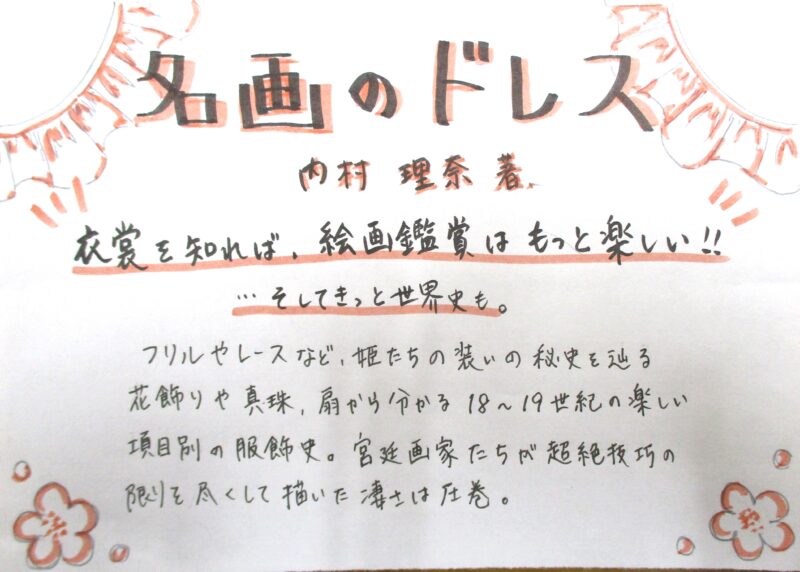 名画のドレス
内村 理奈 著.
衣裳を知れば、絵画鑑賞はもっと楽しい!!
…そしてきっと世界史も。
フリルやレースなど、姫たちの装いの秘史を辿る
花飾りや真珠、扇から分かる18～19世紀の楽しい
項目別の服飾史。宮廷画家たちが超絶技巧の
限りを尽くして描いた凄さは圧巻。